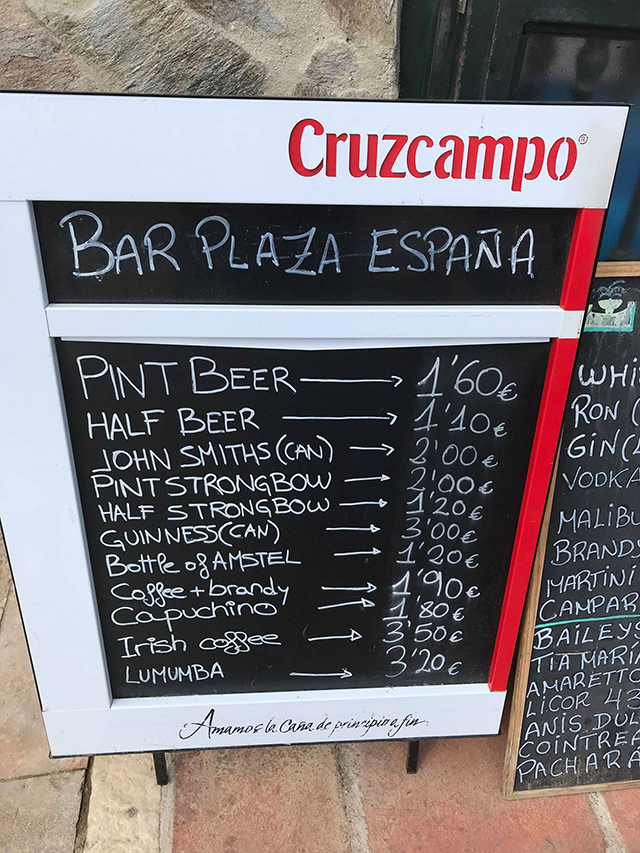 Cruzcampo®
BAR PLAZA ESPAÑA
PINT BEER → 1'60€
HALF BEER → 1'10€
JOHN SMITHS (CAN) → 2'00€
PINT STRONGBOW → 2'00€
HALF STRONGBOW → 1'20€
GUINNESS (CAN) → 3'00€
Bottle of AMSTEL → 1'20€
Coffee + brandy → 1'90€
Capuchino → 1'80€
Irish coffee → 3'50€
LUMUMBA → 3'20€
Amamos la Caña de principio a fin
WHI
RON (
GIN (
VODKA
MALIBU
BRANDY
MARTINI
CAMPAR
BAILEYS
TIA MARIA
AMARETTO
LICOR 43
ANIS DUL
COINTREA
PACHARA